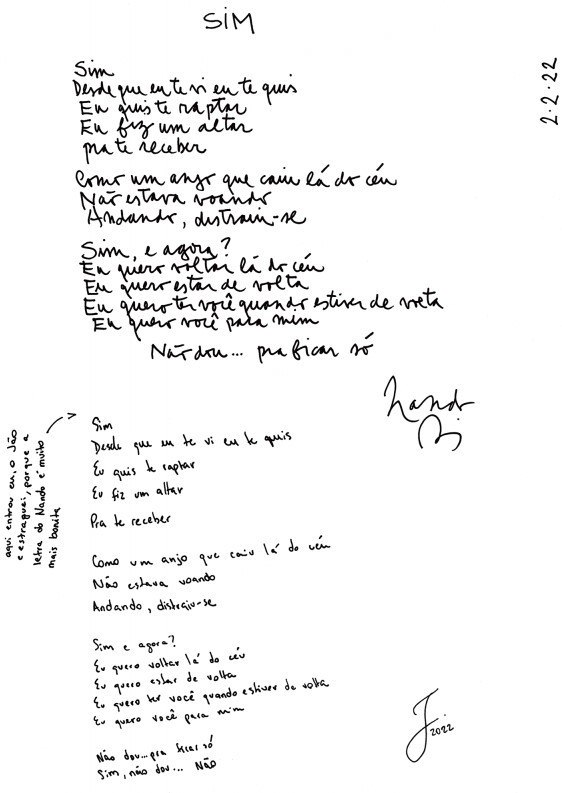 SIM
2.2.22
Sim
Desde que eu te vi eu te quis
Eu quis te raptar
Eu fiz um altar
pra te receber
Como um anjo que caiu lá do céu
Não estava voando
Andando, distraiu-se
Sim, e agora?
Eu quero voltar lá do céu
Eu quero estar de volta
Eu quero ter você quando estiver de volta
Eu quero você para mim
Não dou... pra ficar só
Nando
aqui entrou eu, o Jão
e estraguei, porque a
letra do Nando é muito
mais bonita
Sim
Desde que eu te vi eu te quis
Eu quis te raptar
Eu fiz um altar
Pra te receber
Como um anjo que caiu lá do céu
Não estava voando
Andando, distraiu-se
Sim e agora?
Eu quero voltar lá do céu
Eu quero estar de volta
Eu quero ter você quando estiver de volta
Eu quero você para mim
Não dou... pra ficar só
Sim, não dou... Não
J
2022